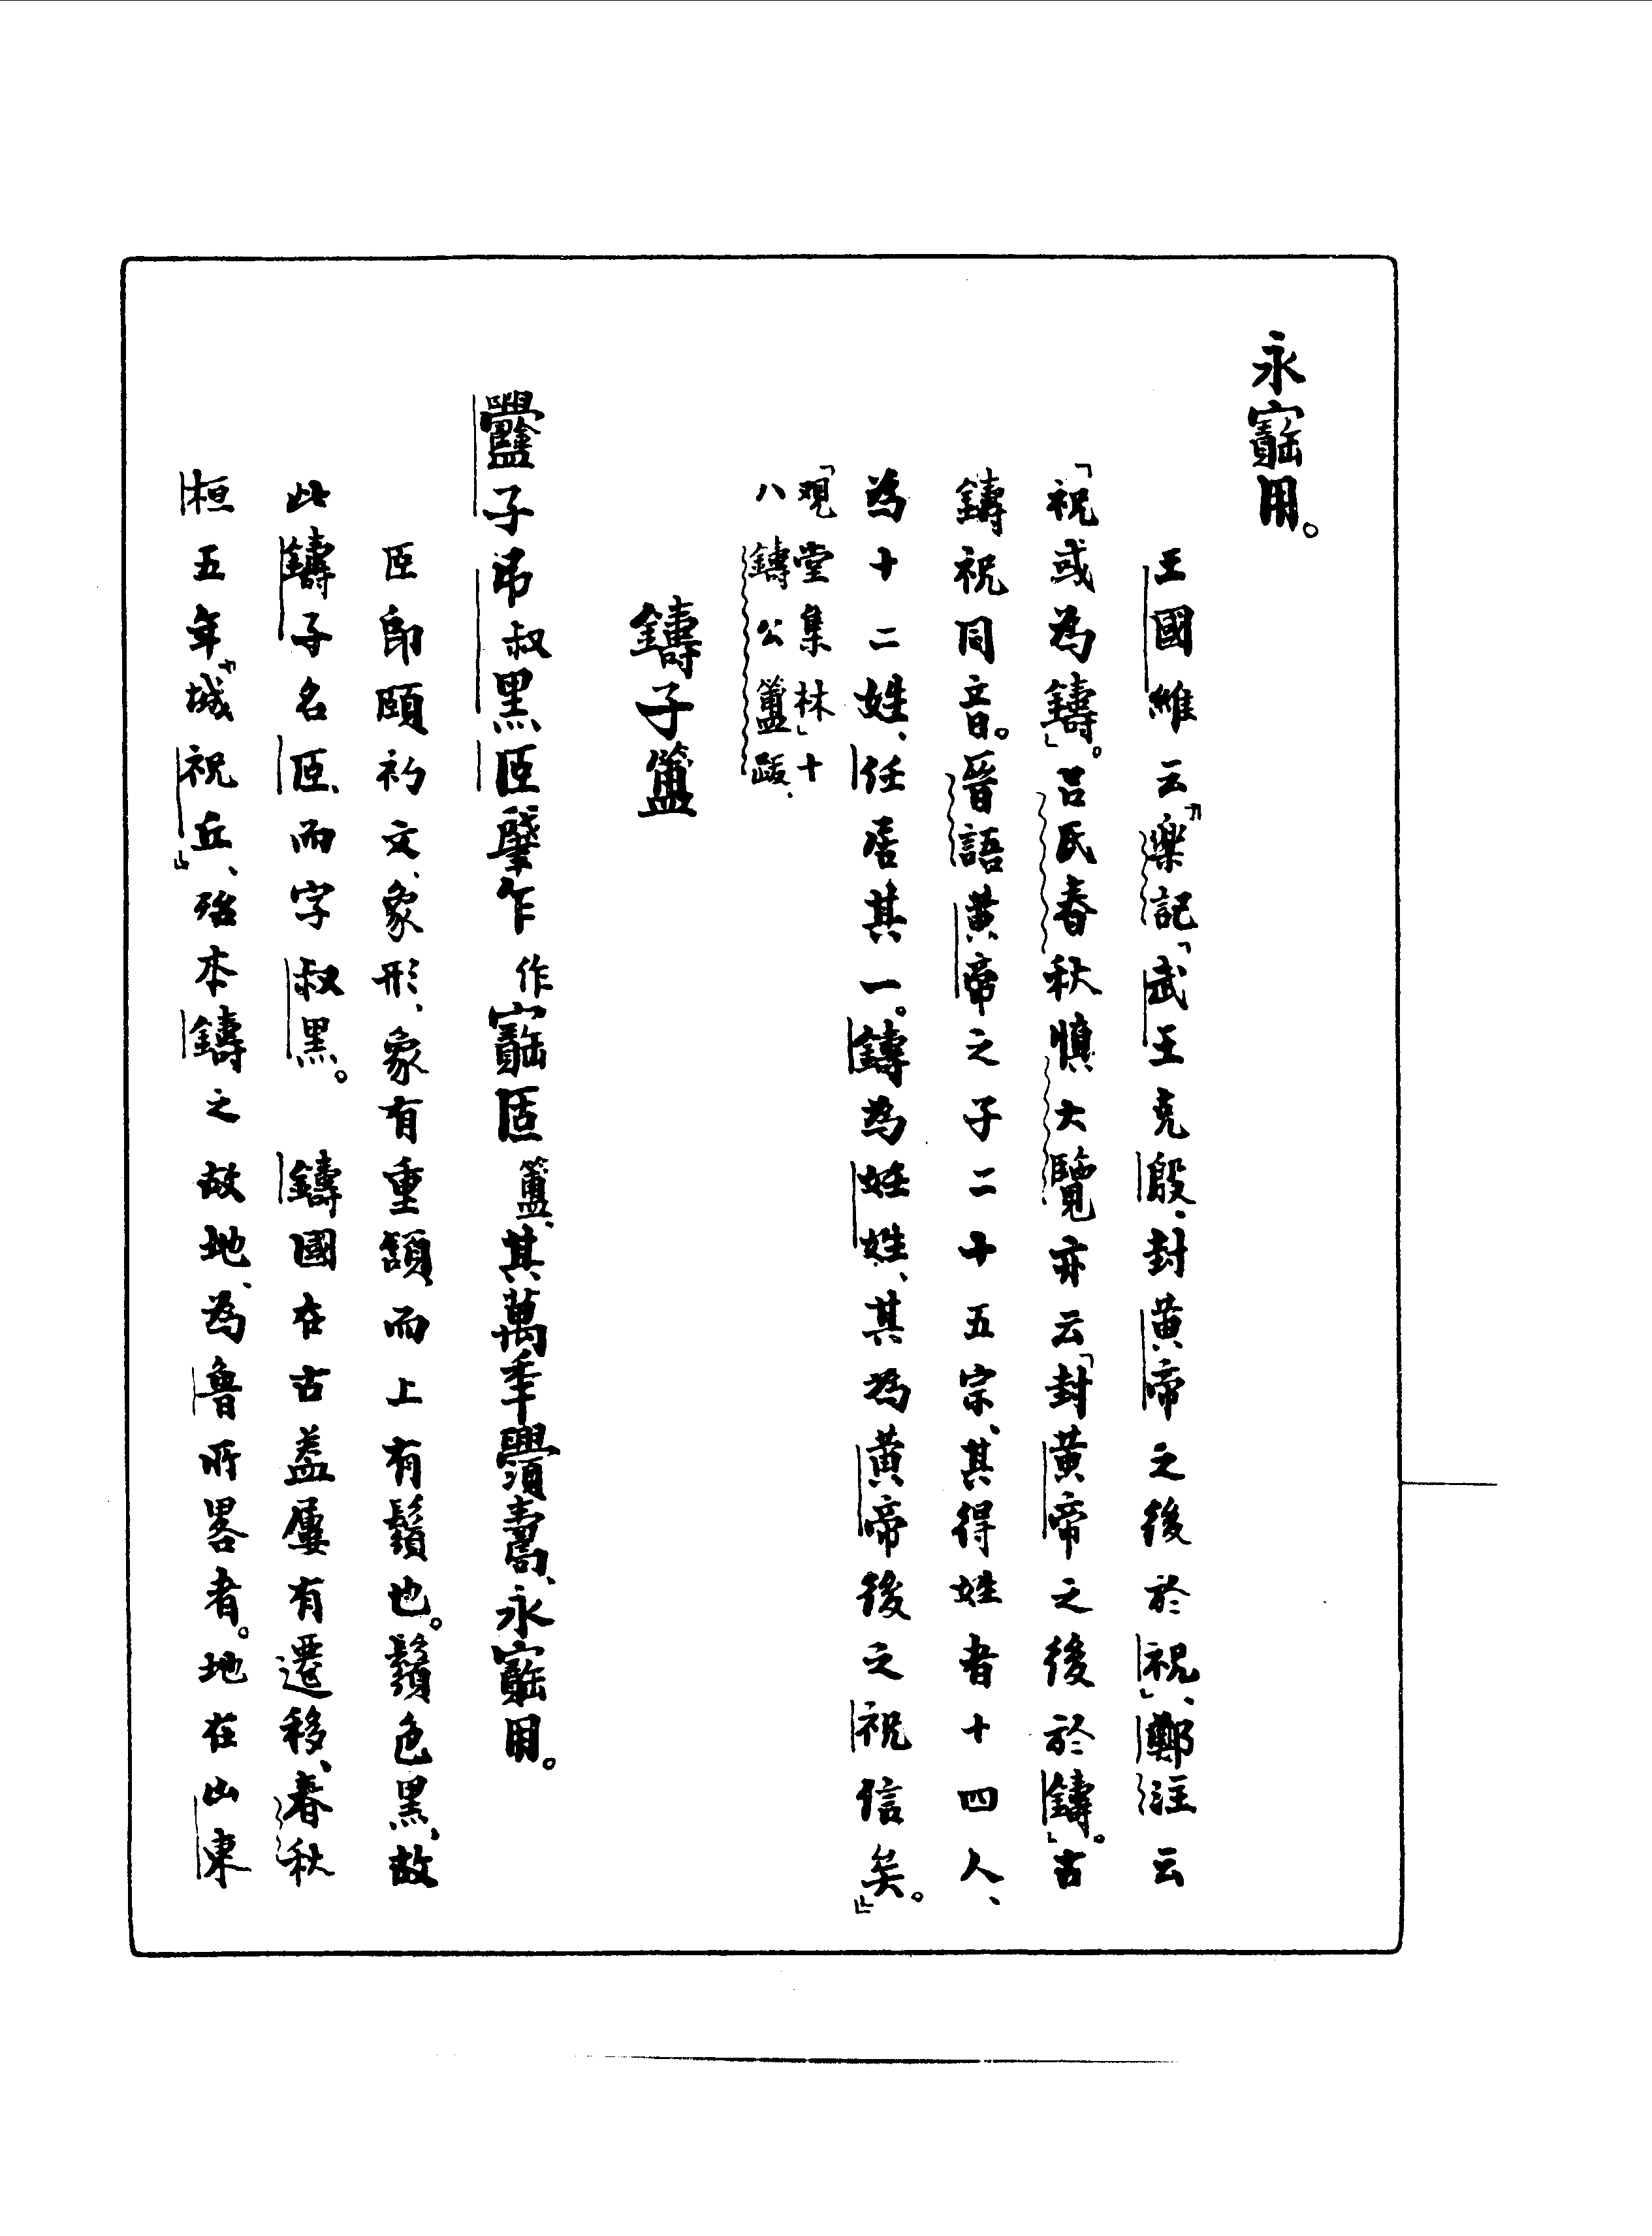 永寶用。
王國維云『樂記「武王克殷、封黃帝之後於祝」、鄭注云
「祝或為鑄」。呂氏春秋慎大覽亦云「封黃帝之後於鑄」。古
鑄祝同音。晉語黃帝之子二十五宗、其得姓者十四人、
為十二姓、任居其一。鑄為妊姓、其為黃帝後之祝信矣。』
「觀堂集林」十
八鑄公簠跋、
鑄子簠
子弔叔黑𦣞肇乍作寶匩簠、其萬年壽、永寶用。
𦣞即頤初文、象形、象有重頷而上有鬚也。鬚色黑、故
此鑄子名𦣞、而字叔黑。 鑄國在古蓋屢有遷移、春秋
桓五年『城祝丘』、殆本鑄之故地、為魯所畧者。地在山東